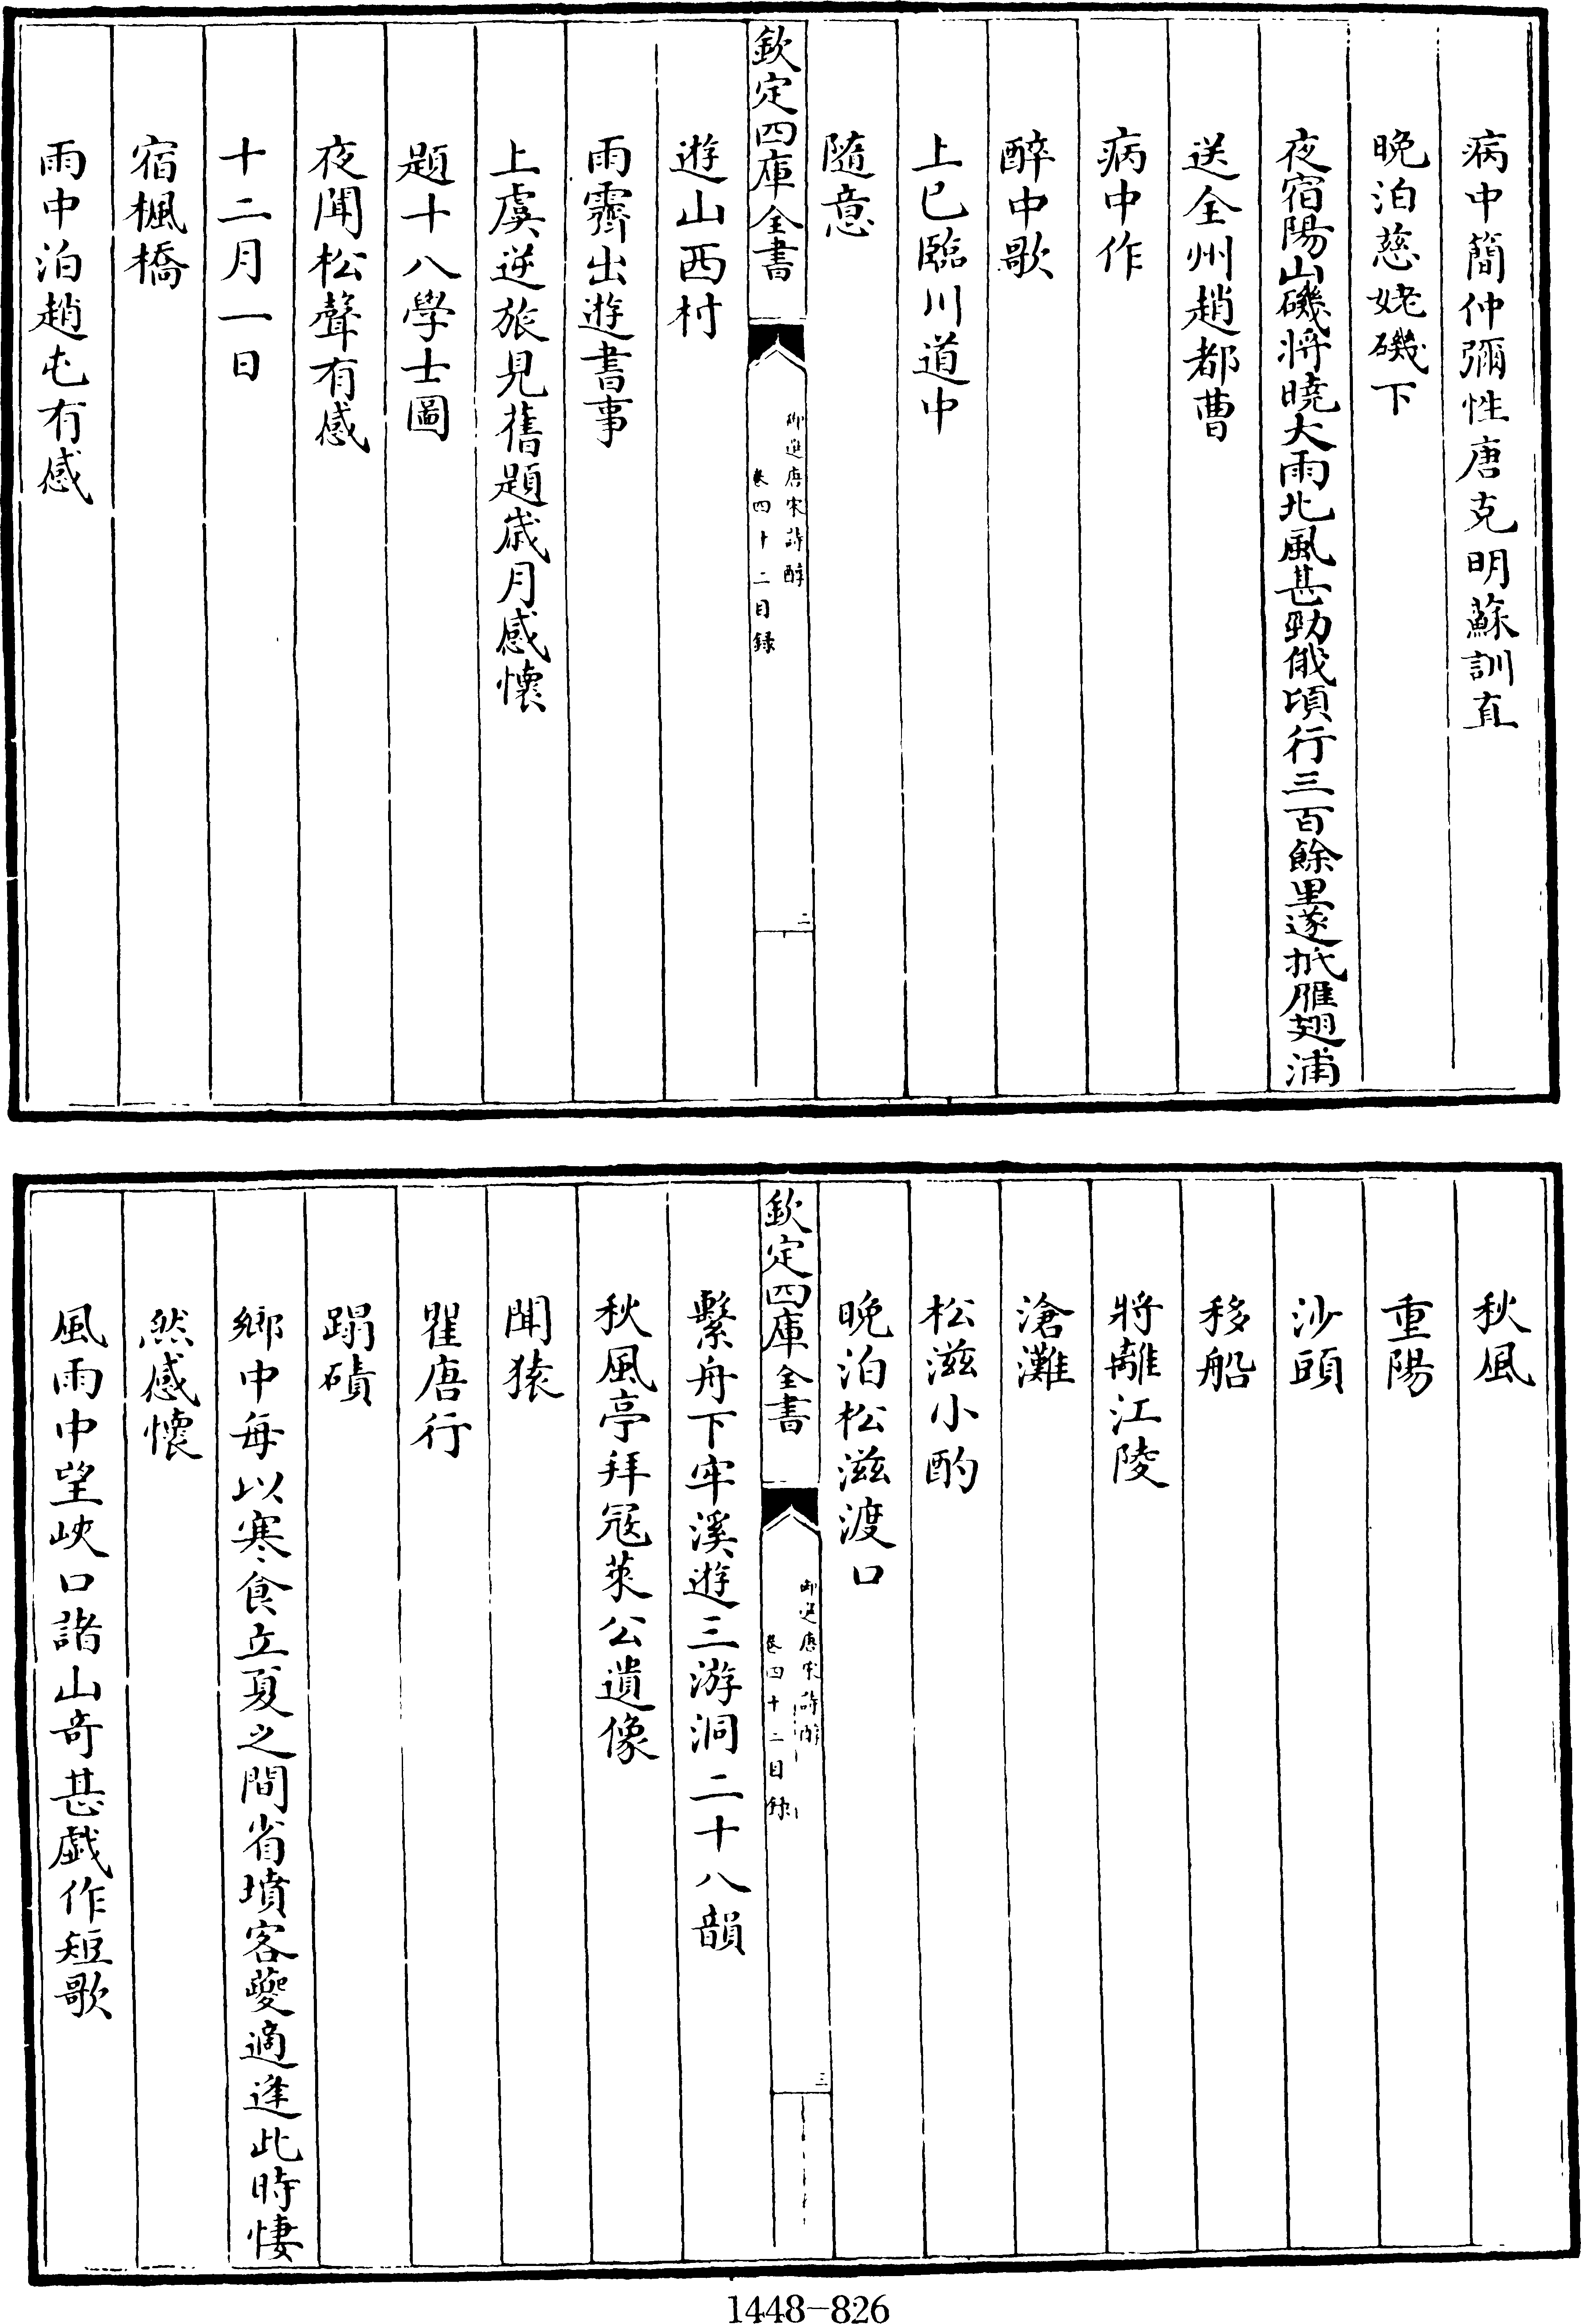 病中簡仲彌性唐克明蘇訓直
晚泊慈姥磯下
夜宿陽山磯將曉大雨北風甚勁俄頃行三百餘里遂抵雁翅浦
送全州趙都曹
病中作
醉中歌
上巳臨川道中
隨意
欽定四庫全書
御選唐宋詩醇
卷四十二目録
二
遊山西村
雨霽出遊書事
上虞逆旅見舊題歲月感懷
題十八學士圖
夜聞松聲有感
十二月一日
宿楓橋
雨中泊趙屯有感
秋風
重陽
沙頭
移船
將離江陵
滄灘
松滋小酌
晚泊松滋渡口
欽定四庫全書
御選唐宋詩醇
卷四十二目録
三
繫舟下牢溪遊三游洞二十八韻
秋風亭拜寇萊公遺像
聞猿
瞿唐行
蹋磧
鄉中每以寒食立夏之間省墳客夔適逢此時悽
然感懷
風雨中望峽口諸山奇甚戲作短歌
1448-826